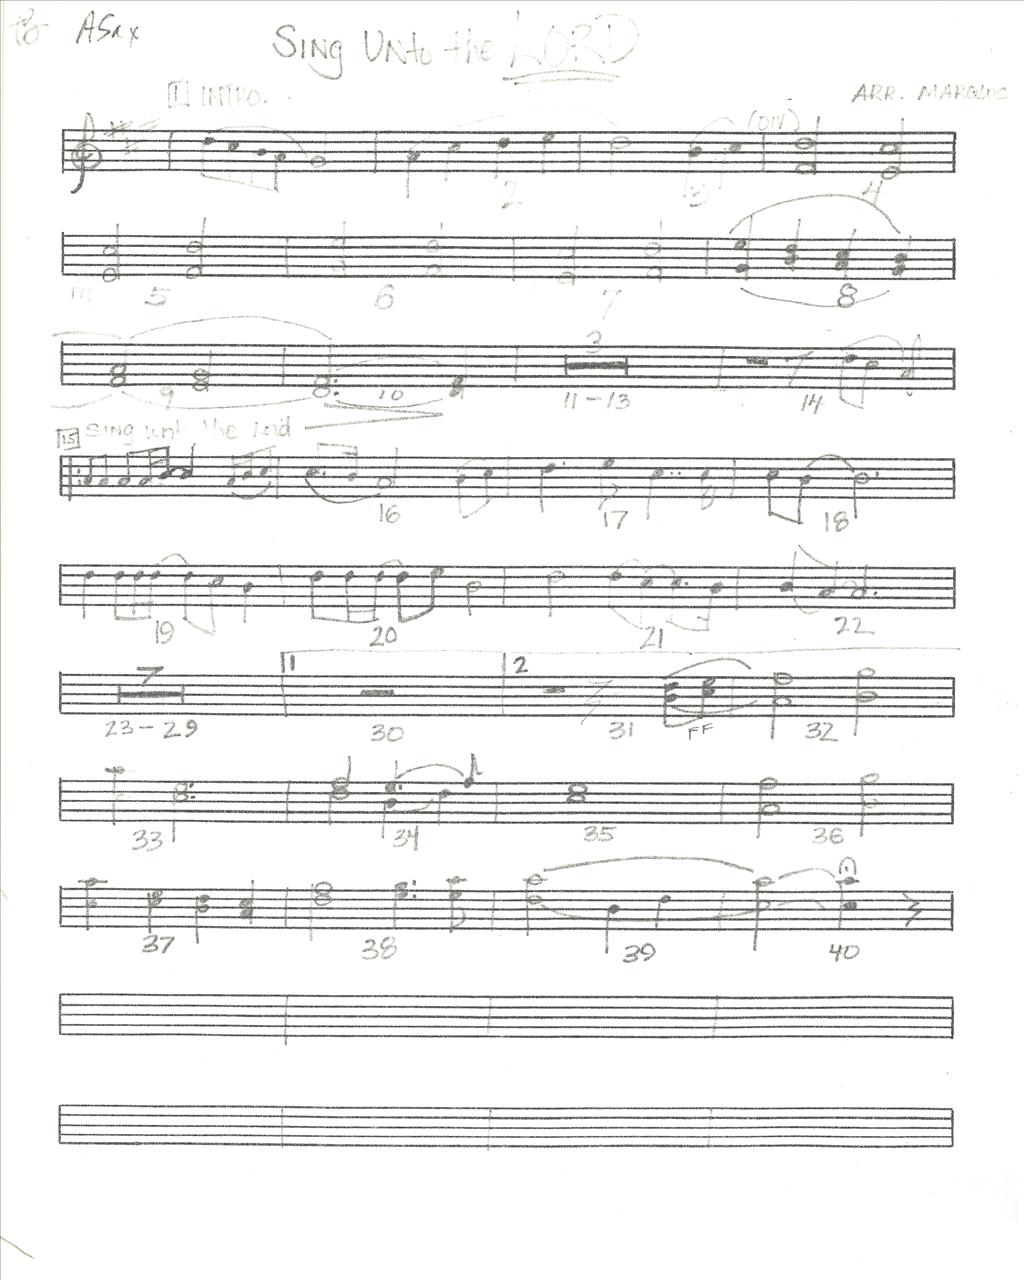 ASax
Sing Unto the LORD
1 INTRO.
ARR. MARQUIS
(DIV)
2 3 4
5 6 7 8
3
9 10 11-13 14
15 Sing unto the Lord
16 17 18
19 20 21 22
7 1 2
23-29 30 31 FF 32
33 34 35 36
37 38 39 40